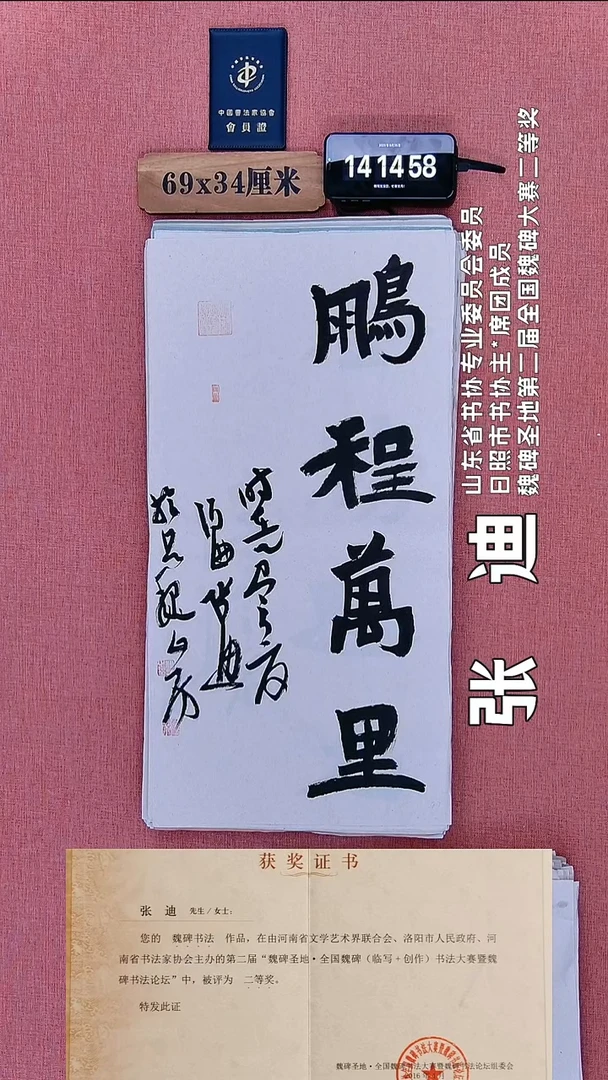 中國書法家協會
會員證
69x34厘米
14 14 58
鵬程萬里
山东省书协专业委员会委员
日照市书协主*席团成员
魏碑圣地第二届全国魏碑大赛二等奖
张 迪
获奖证书
张 迪 先生/女士：
您的 魏碑书法 作品，在由河南省文学艺术界联合会、洛阳市人民政府、河
南省书法家协会主办的第二届“魏碑圣地·全国魏碑（临写+创作）书法大赛暨魏
碑书法论坛”中，被评为 二等奖。
特发此证
魏碑圣地·全国魏碑书法大赛暨魏碑书法论坛组委会